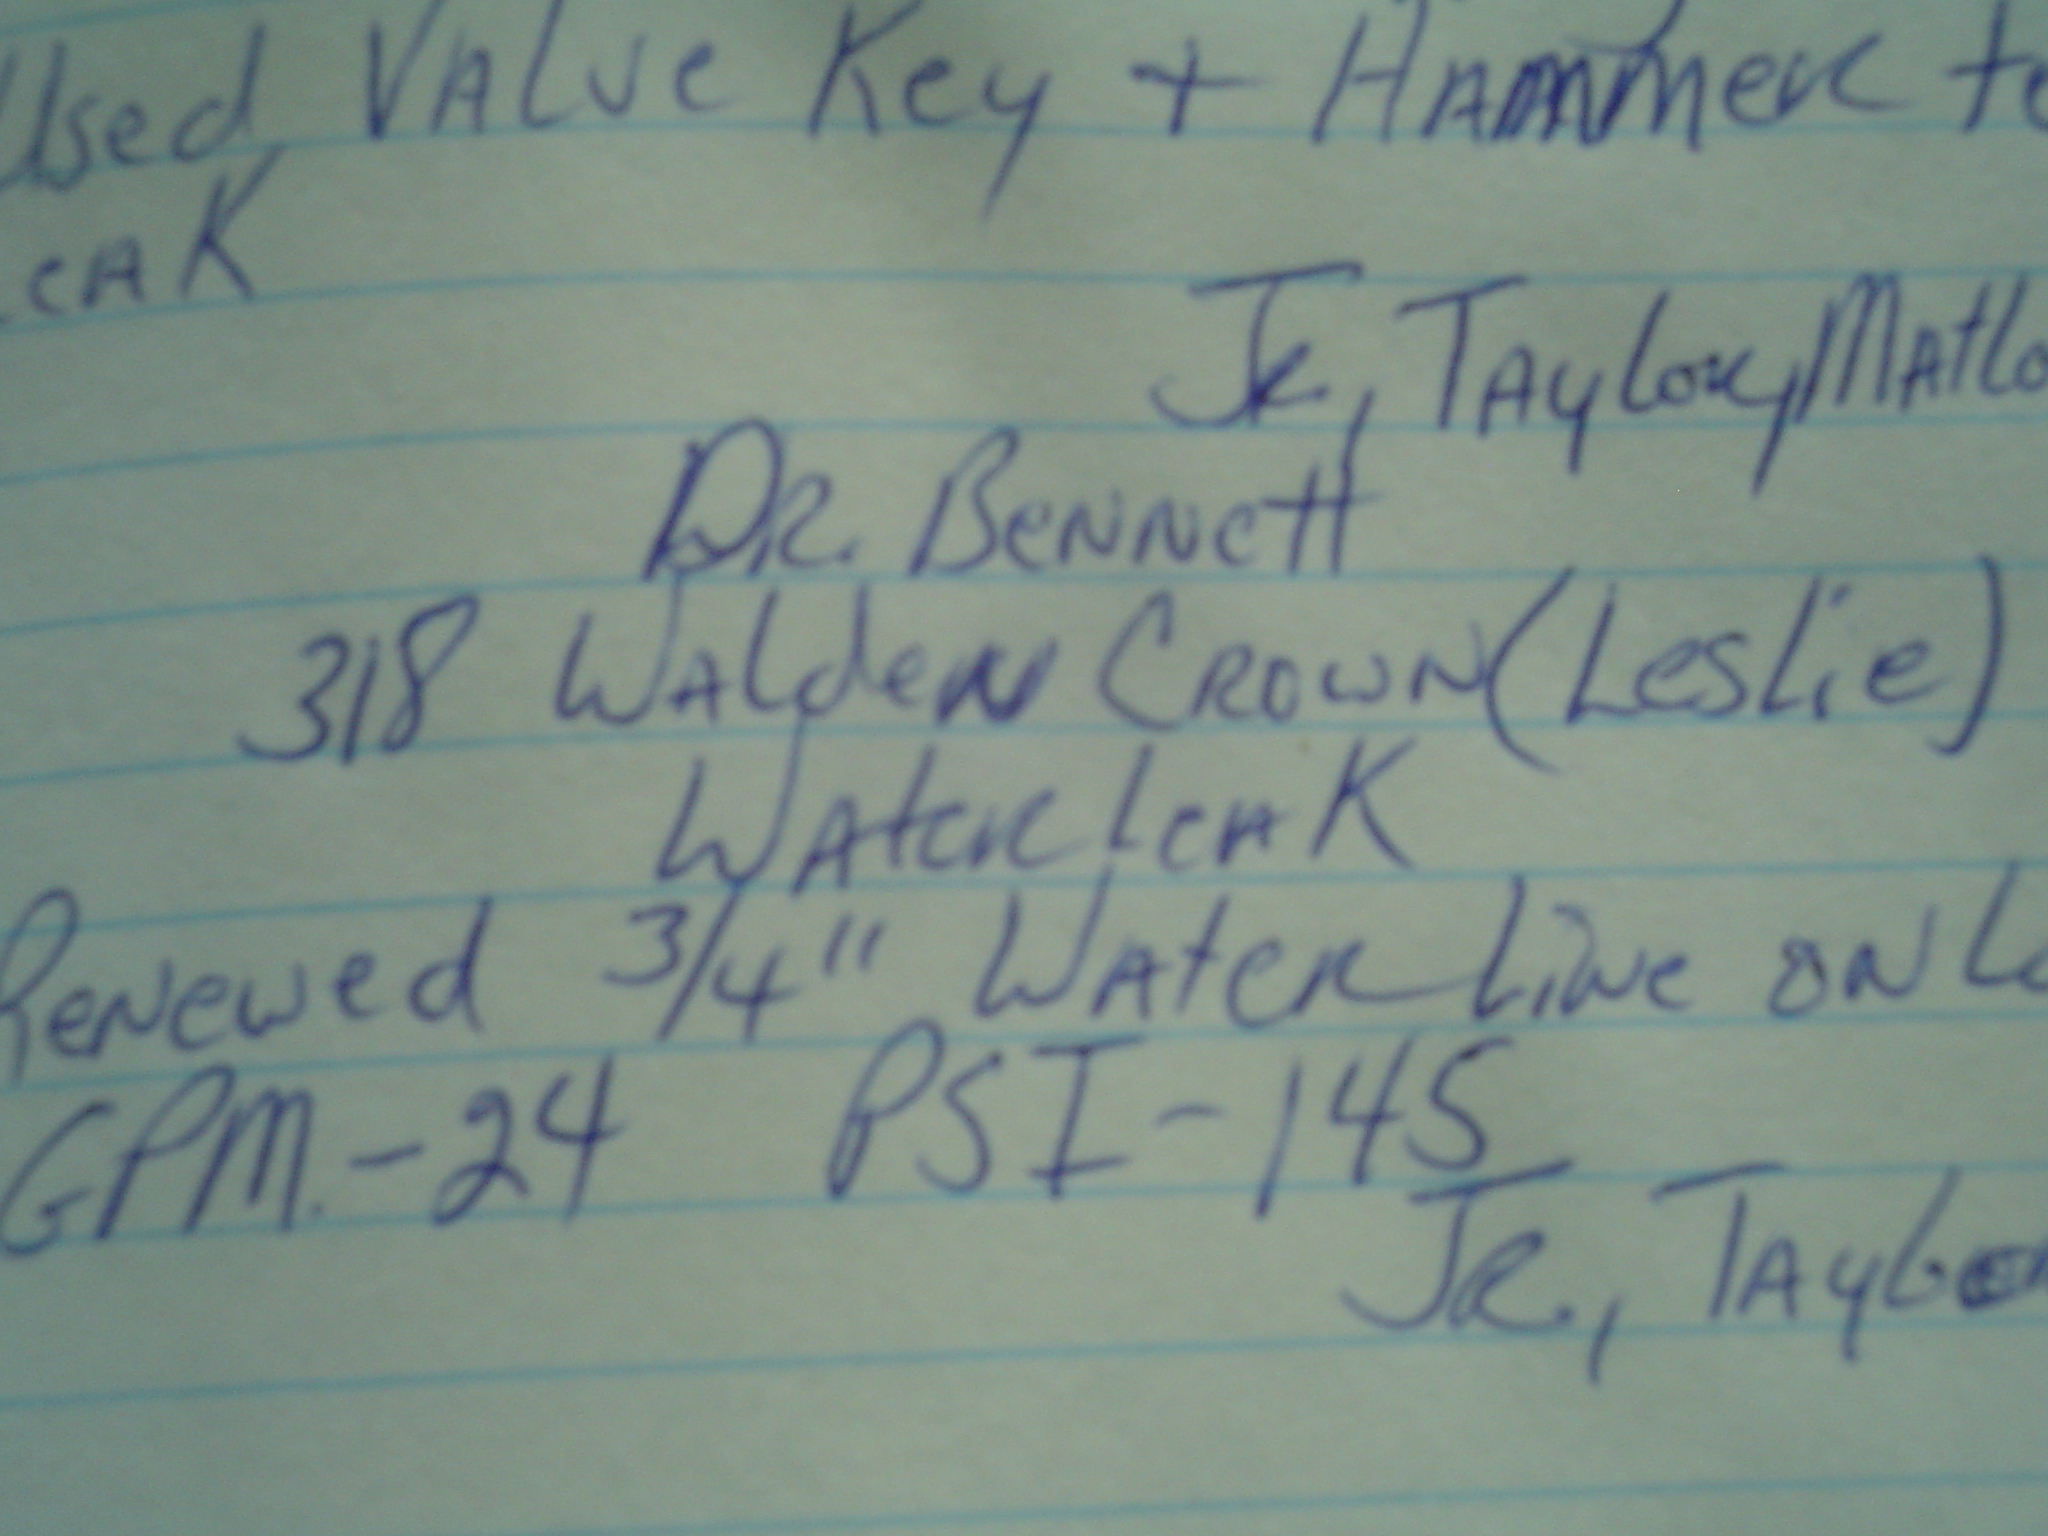 Used Valve Key + Hammer to
Leak
Jr, Taylor, Matlo
Dr. Bennett
318 Walden Crown (Leslie)
Water Leak
Renewed 3/4" Water Line on L
GPM. - 24 PSI - 145
Jr, Taylor